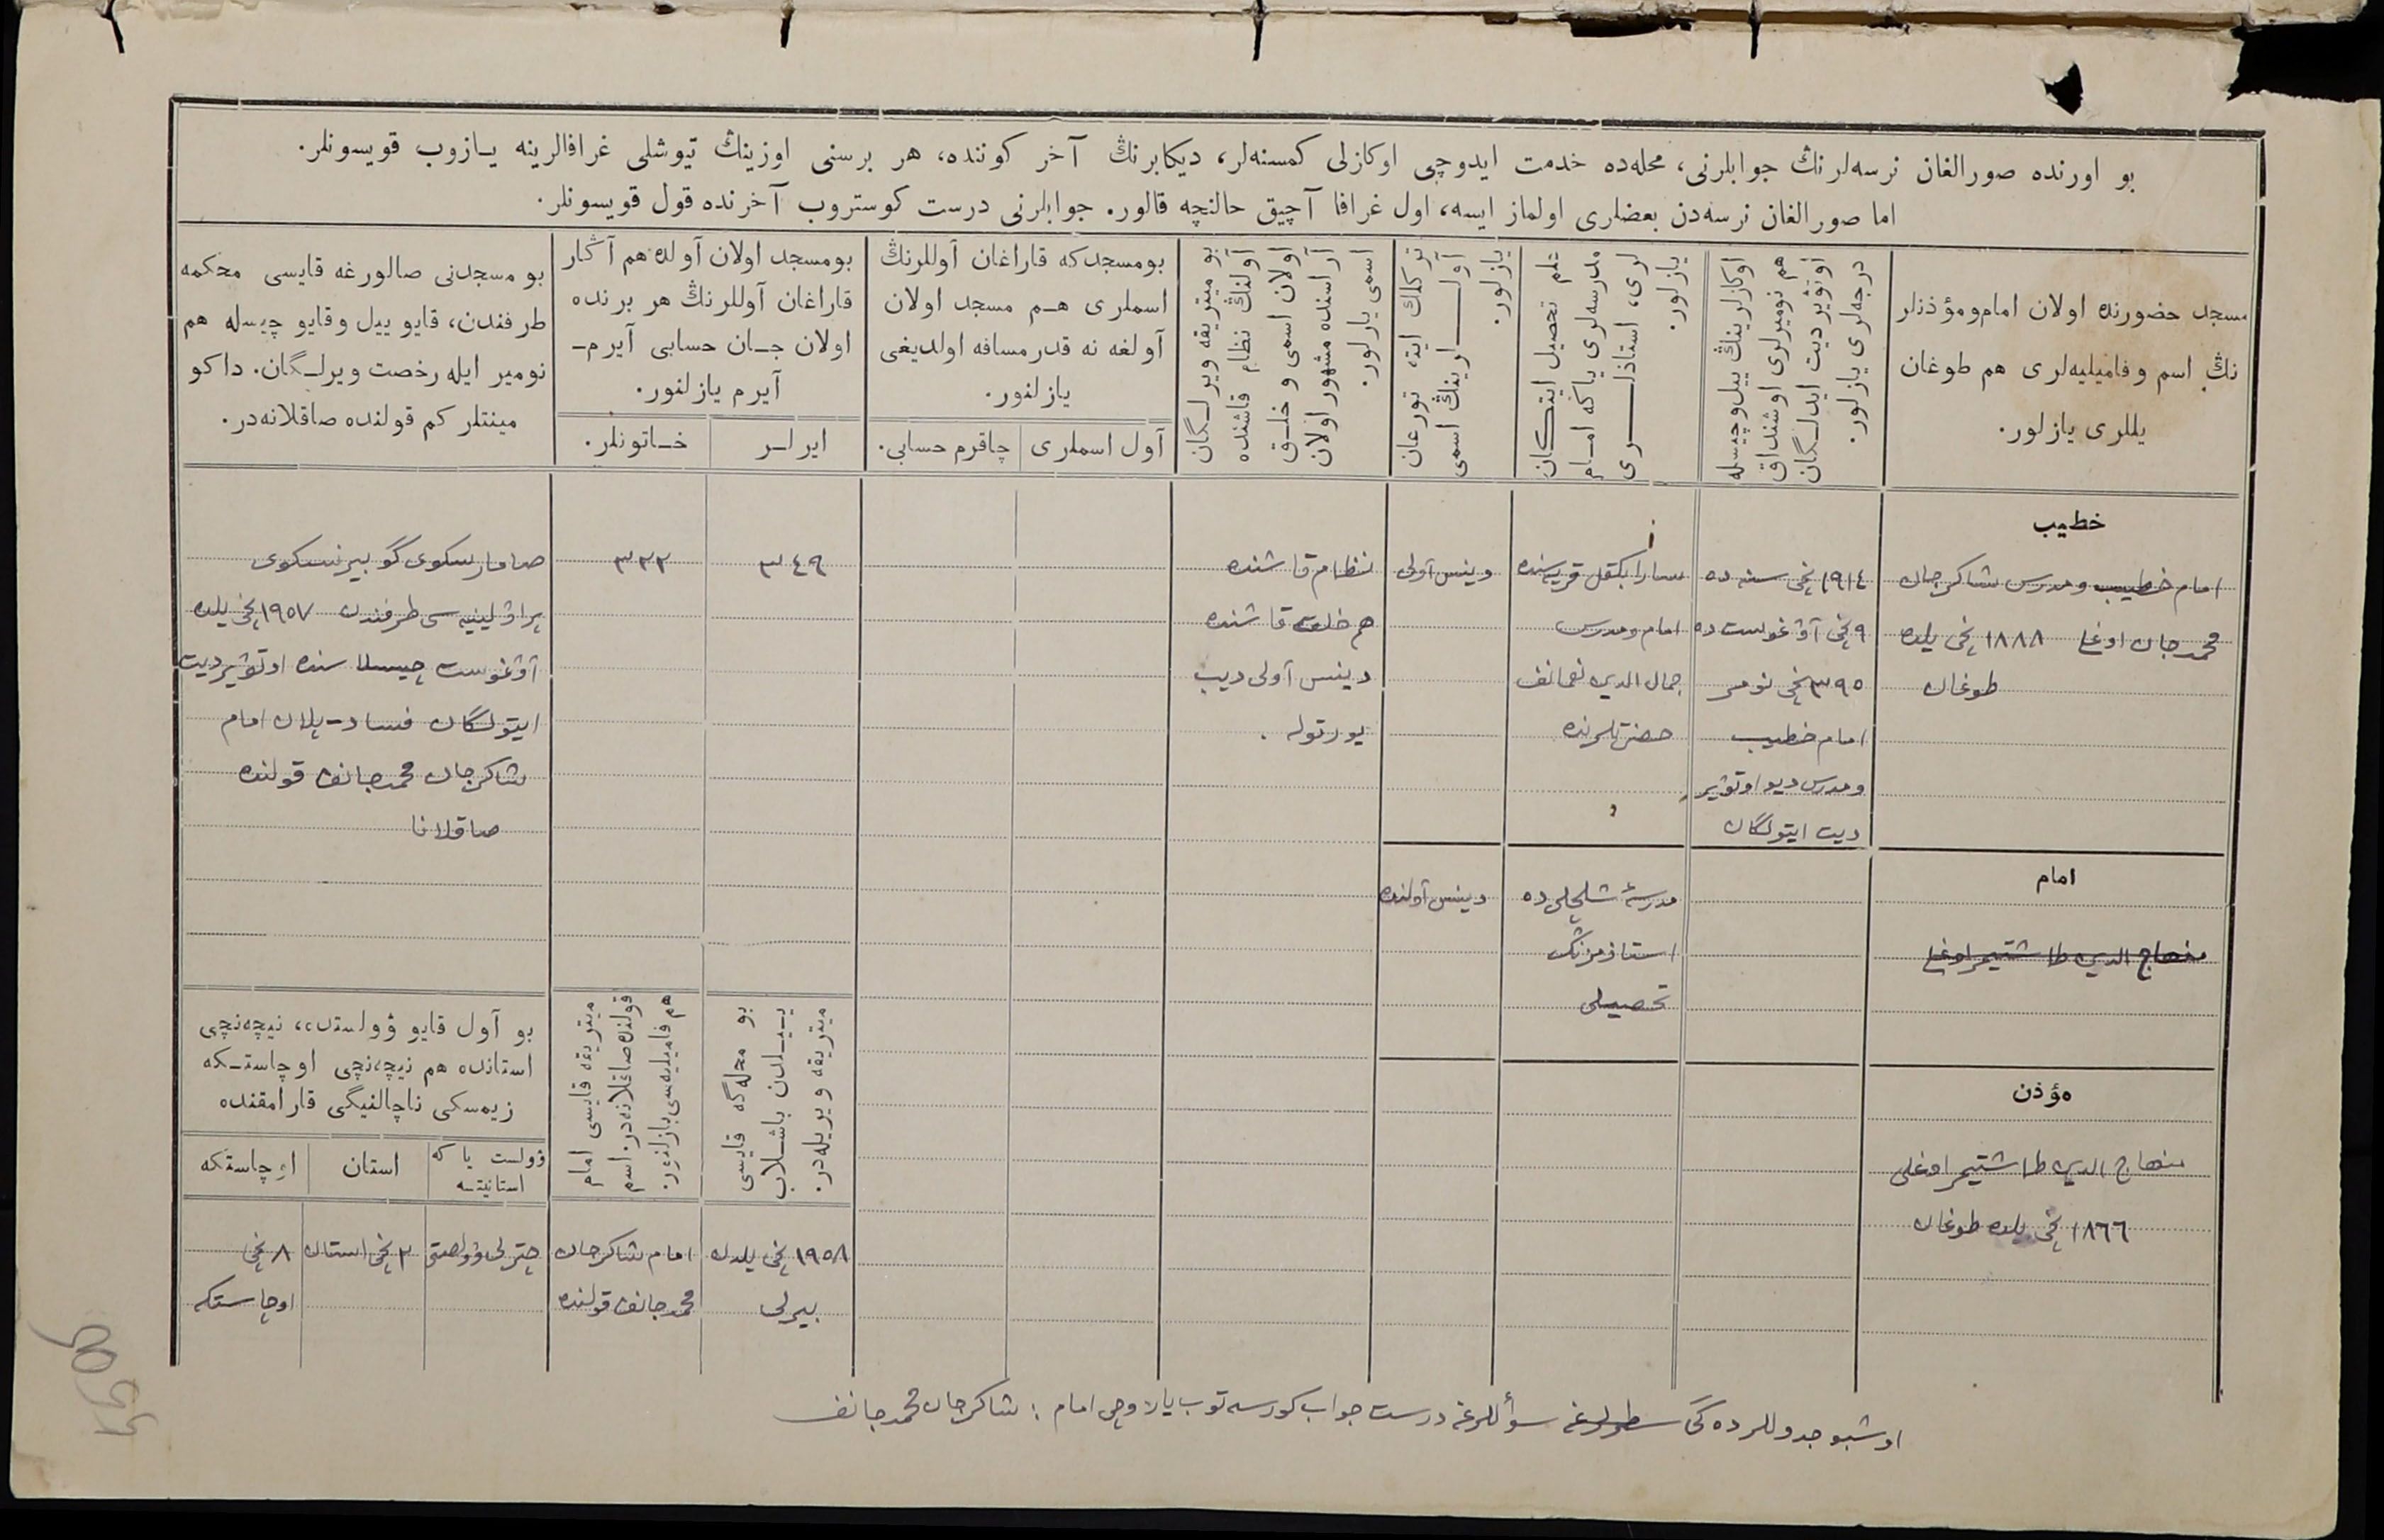 بو اورنده صورالغان نرسه‌لرنڭ جوابلرنی، محله‌ده خدمت ایدوچی اوکازلی کمسنه‌لر، دیکابرنڭ آخر کوننده، هر برسنی اوزینڭ تیوشلی غرافالرینه یـازوب قویسونلر.
اما صورالغان نرسه‌دن بعضلری اولماز ایسه، اول غرافا آچیق حالنچه قالور. جوابلرنی درست کوستروب آخرنده قول قویسونلر.
مسجد حضورنده اولان امام‌ومؤذنلر
نڭ اسم وفامیلیه‌لری هم طوغان
یللری یازلور.
اوکازلرینڭ ییل‌وچیسله
هم نومیرلری اوشنداق
اوتوێردیت ایدلـگان
درجه‌لری یازلور.
علم تحصیل ایتـکان
مدرسه‌لری یاکه امـام
لری، استاذلـــری
یازلور.
ترکلك ایته، تورغان
آولــــلرینڭ اسمی
یازلور.
بو میتریقه ویرلـگان
آولنڭ نظام قاشنده
اولان اسمی و خلـق
آراسنده مشهور اولان
اسمی یازلور.
بومسجدکه قاراغان آوللرنڭ
اسملری هـم مسجد اولان
آولغه نه قدر مسافه اولدیغی
یازلنور.
آول اسملری
چاقرم حسابی.
بومسجد اولان آولده هم آڭار
قاراغان آوللرنڭ هر برنده
اولان جـان حسابی آیرم-
آیرم یازلنور.
ایرلـر
خـاتونلر.
بو مسجدنی صالورغه قایسی محکمه
طرفندن، قایو ییل وقایو چیسله هم
نومیر ایله رخصت ویرلـگان. داکو
مینتلر کم قولنده صاقلانه‌در.
خطیب
امام خطیب ومدرس شاکرجان
محمدجان اوغلی ١٨٨٨ نچی یلده
طوغان
١٩١٤ نچی سنه ده
٩ نچی آۋغوست ده
٣٩٥ نچی نومر
امام خطیب
ومدرس دیو اوتوێر
دیت ایتولگان
قریه‌سنده
امام ومدرس
جمال الدین
حضرتلرنده
دینس آولی
نظام قاشنده
هم خلق قاشنده
دینس آولی دیب
یورتوله .
٣٤٩
٣٢٢
صامارسکوی گوبیرنسکوی
پراۋلینیه سی طرفندن ١٩٠٧ نچی یلده
آۋغوست چیسلاسنده اوتوێردیت
ایتولگان فساد-پلان امام
شاکرجان محمدجانف قولنده
صاقلانا
امام
منهاج الدین طاشتیمر اوغلی
مدرسهٔ
استاذمزنڭ
تحصیلی
دینس آولنده
مؤذن
منهاج الدین طاشتیمر اوغلی
١٨٦٦ نچی یلده طوغان
بو محله‌گه قایسی
ییـلدن باشـلاب
میتریقه ویریله‌در.
١٩٠٨ نچی یلدن
بیرلی
میتریقه قایسی امام
قولنده صاقلانه‌در. اسم
هم فامیلیه‌سی یازلنور.
امام شاکرجان
محمدجانف قولنده
بو آول قایو ۋولستده، نیچه‌نچی
استانده هم نیچه‌نچی اوچاستـکه
زیمسکی ناچالنیگی قارامقنده
ۋولست یا که
استانیتـه
استان
اوچاستکه
٢ نچی استان
٨ نچی
اوچاستکه
اوشبو جدوللرده گی سطرلرغه سؤاللرغه درست جواب کورسه‌توب یازوچی امام : شاکرجان محمدجانف